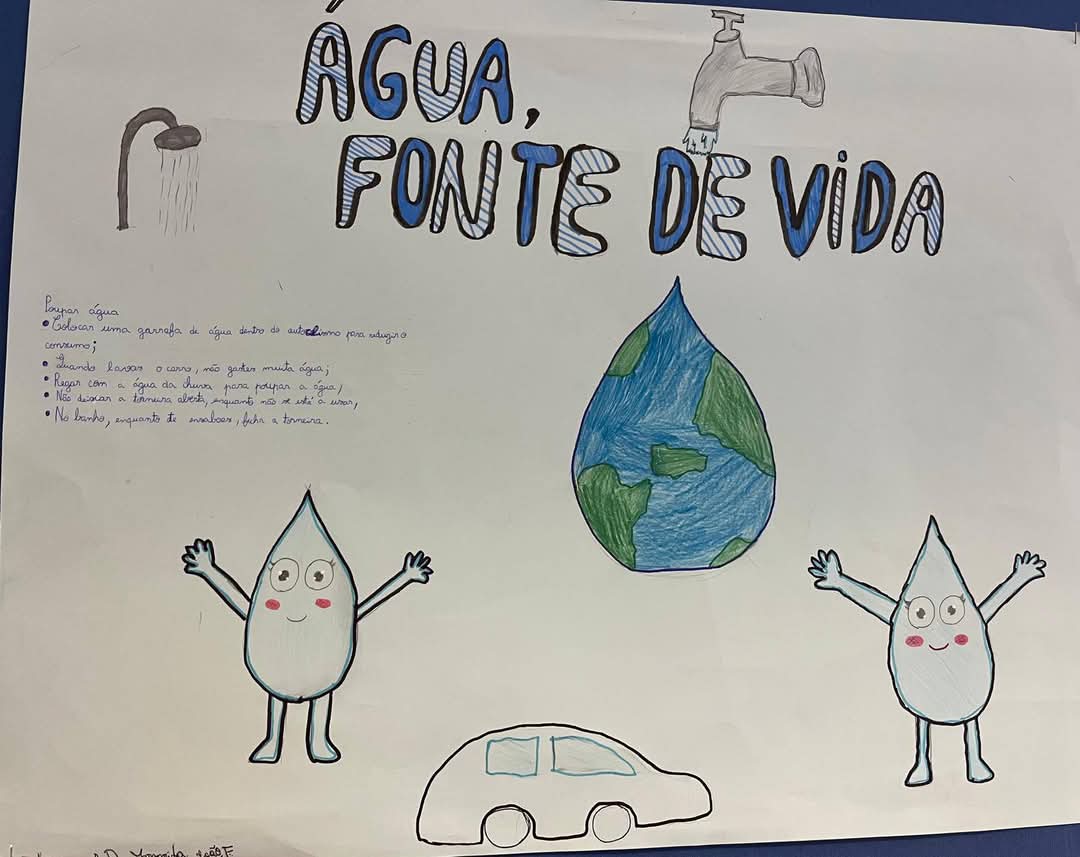 ÁGUA,
FONTE DE ViDA
Poupar água
• Colocar uma garrafa de água dentro do autoclismo para reduzir o
consumo;
• Quando lavas o carro, não gastes muita água;
• Regar com a água da chuva para poupar a água,
• Não deixar a torneira aberta, enquanto não se está a usar,
• No banho, enquanto te ensaboas, fecha a torneira.
Margarida, João F.